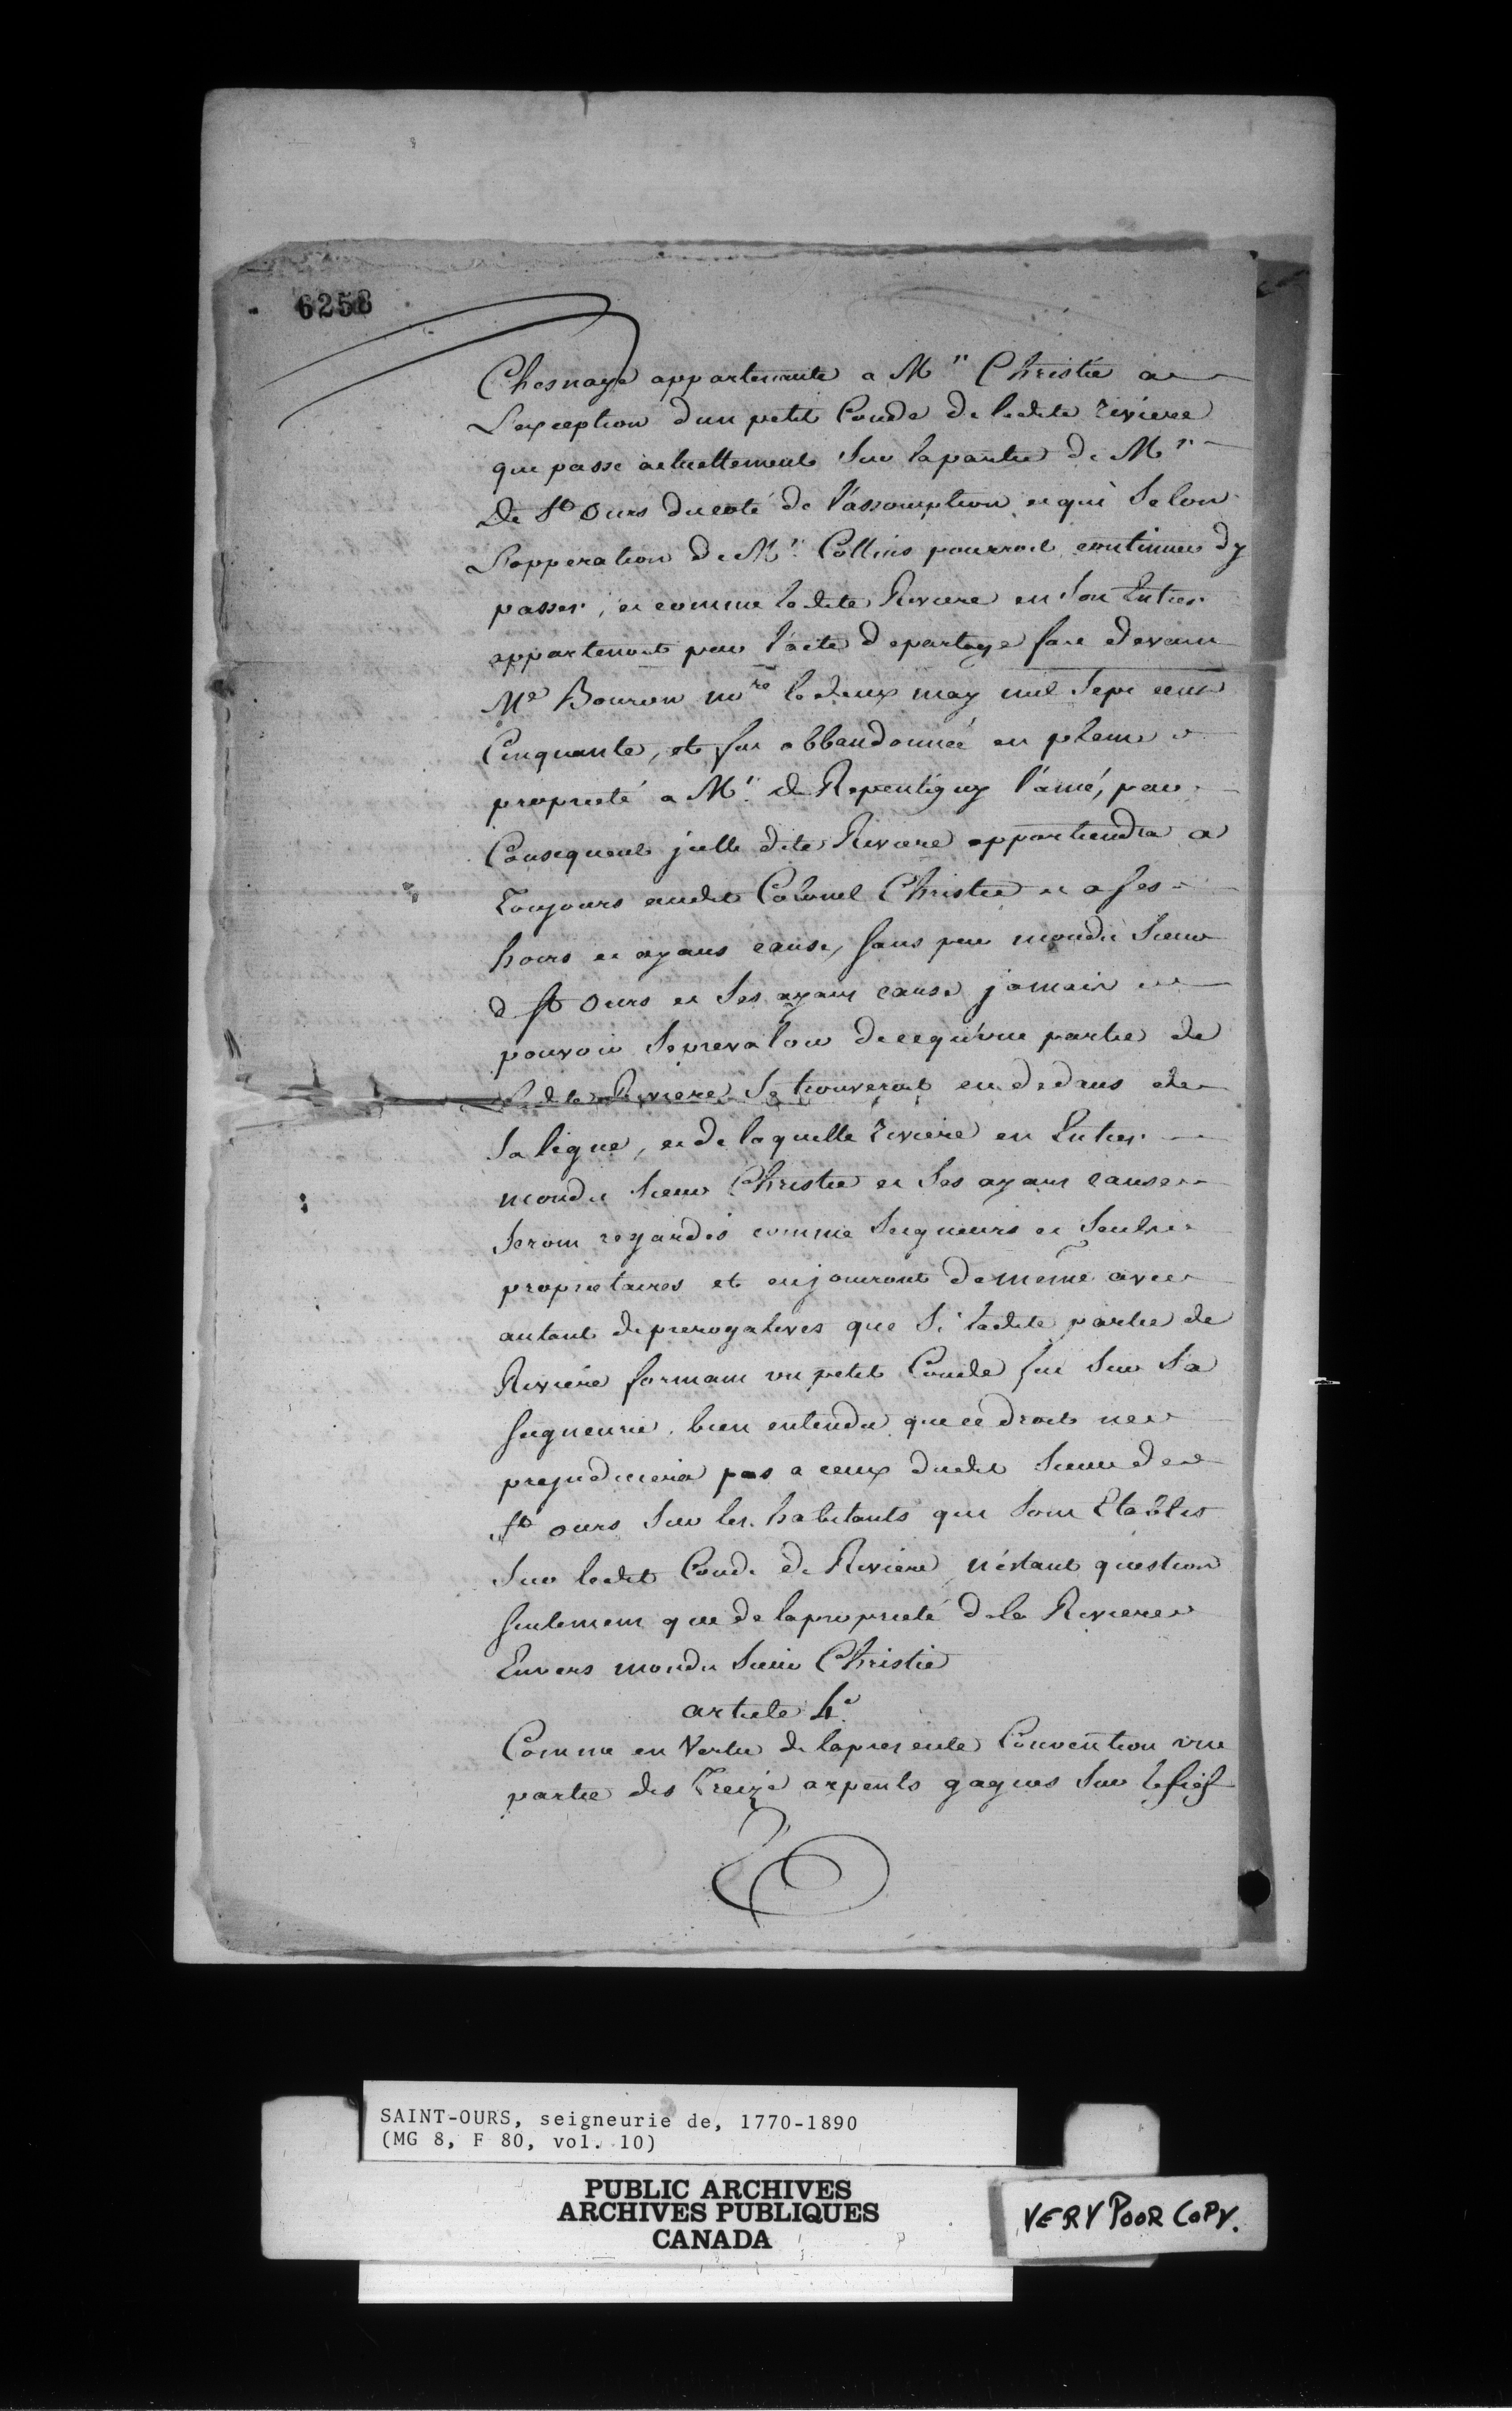 6258
Chesnaye appartenante a Mr Christie a
L'exception d'un petit Coude de ladite riviere
qui passe actuellement Sur la partie de Mr
De St Ours du coté de l'assomption, et qui Selon
L'opperation de Mr Collins pourroit continuer d'y
passer, et comme ladite Riviere en Son Entier
appartenoit par l'acte de partage fait devant
Me Bouron nre le deux may mil Sept cent
Cinquante, et fut abbandonnée en pleine
propriété a Mr de Repentigny l'ainé, par
Consequent jcelle dite Riviere appartiendra a
Toujours audit Colonel Christie et a ses
hoirs et ayans cause, sans que mondit Sieur
de St Ours et Ses ayans cause jamais
pouvoir Se prevaloir de ce qu'une partie de
Ladite Riviere Se trouveroit en dedans de
Sa ligne, et de laquelle riviere en Entier
mondit Sieur Christie et Ses ayans cause
Seront regardés comme Seigneurs et Seuls
proprietaires et en jouiront de meme avec
autant de prerogatives que Si ladite partie de
Riviere formant un petit Coude fut Sur Sa
Seigneurie, bien entendu que ce droit ne
prejudiciera pas a ceux dudit Sieur de
St ours Sur les habitants qui Sont Etablis
Sur ledit Coude de Riviere, n'étant question
seulement que de la propriété de la Riviere
Envers mondit Sieur Christie
article 4e
Comme en Vertu de la presente Convention une
partie des Treize arpents gagnes Sur le fief
SAINT-OURS, seigneurie de, 1770-1890
(MG 8, F 80, vol. 10)
PUBLIC ARCHIVES
ARCHIVES PUBLIQUES
CANADA
VERY POOR COPY.